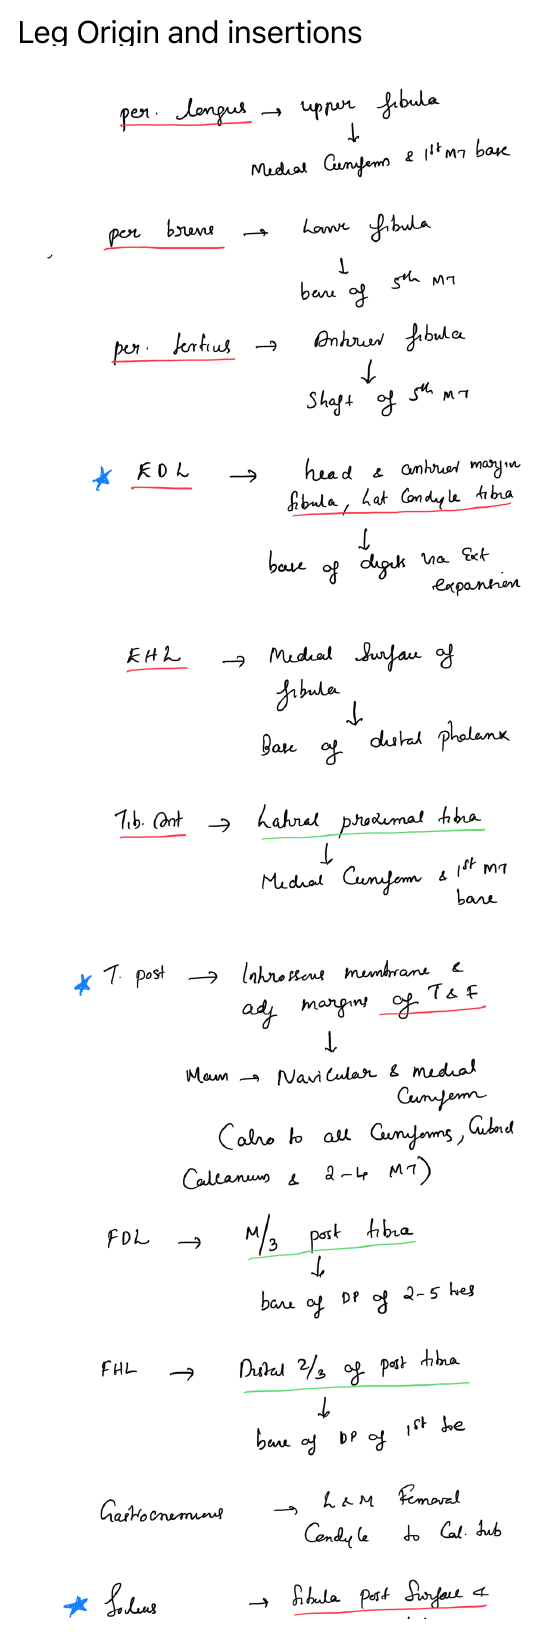 Leg Origin and insertions
per. longus → upper fibula
↓
Medial Cuneiform & 1st MT base
per brevis → Lower fibula
↓
base of 5th MT
per. tertius → Anterior fibula
↓
Shaft of 5th MT
EDL → head & anterior margin
fibula, Lat Condyle tibia
↓
base of digits via Ext
expansion
EHL → Medial Surface of
fibula
↓
Base of distal phalanx
Tib. Ant → Lateral proximal tibia
↓
Medial Cuneiform & 1st MT
base
T. post → Interosseous membrane &
adj margins of T & F
↓
Main → Navicular & medial
Cuneiform
(also to all Cuneiforms, Cuboid
Calcaneum & 2-4 MT)
FDL → M/3 post tibia
↓
base of DP of 2-5 toes
FHL → Distal 2/3 of post tibia
↓
base of DP of 1st toe
Gastrocnemius → L & M Femoral
Condyle to Cal. tub
Soleus → fibula post Surface &